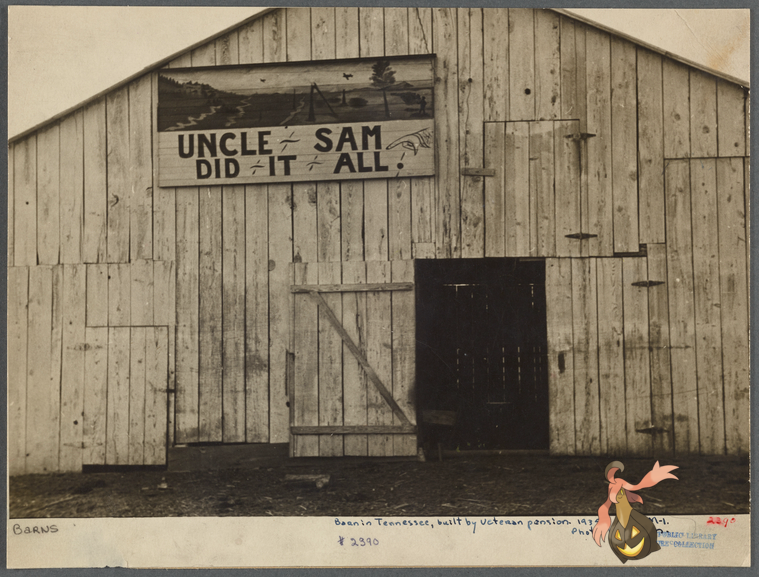 UNCLE SAM
DID IT ALL!
BARNS
Barn in Tennessee, built by Veteran pension. 193
Phot
# 2390
PUBLIC LIBRARY
COLLECTION